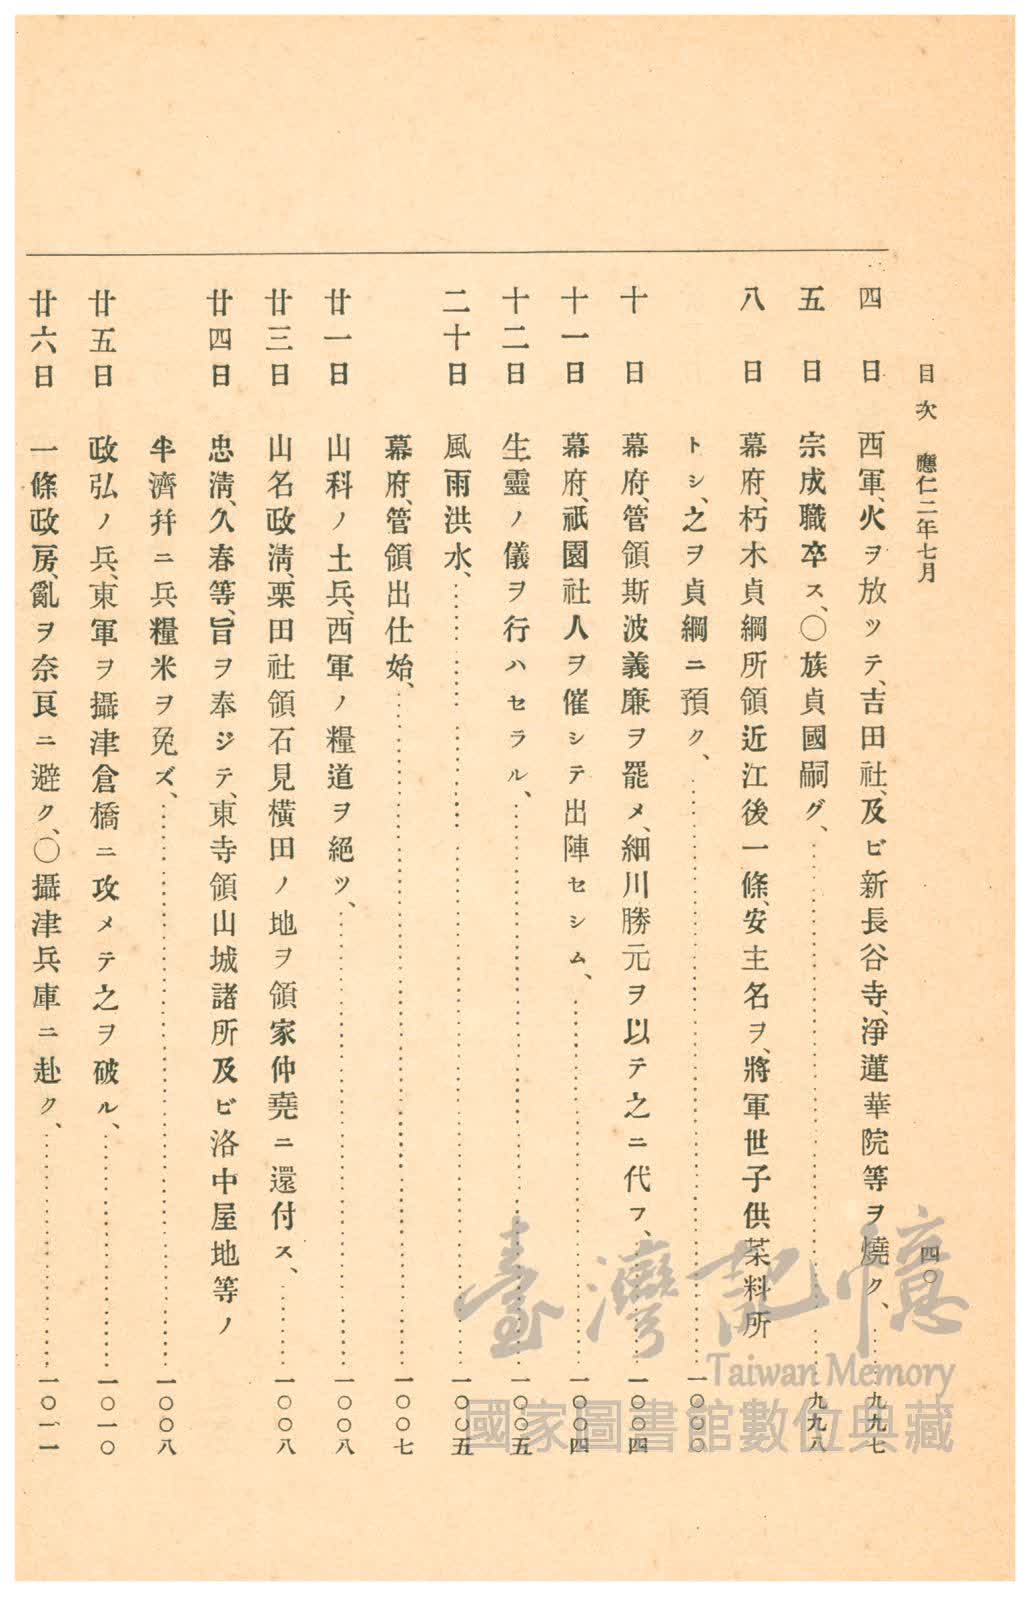 目次　應仁二年七月　四〇
四日　西軍、火ヲ放ツテ、吉田社、及ビ新長谷寺、淨蓮華院等ヲ燒ク、……九九七
五日　宗成職卒ス、〇族貞國嗣グ、……九九八
八日　幕府、朽木貞綱所領近江後一條、安主名ヲ、將軍世子供菜料所
トシ、之ヲ貞綱ニ預ク、……一〇〇〇
十日　幕府、管領斯波義廉ヲ罷メ、細川勝元ヲ以テ之ニ代フ、……一〇〇四
十一日　幕府、祇園社人ヲ催シテ出陣セシム、……一〇〇四
十二日　生靈ノ儀ヲ行ハセラル、……一〇〇五
二十日　風雨洪水、……一〇〇五
幕府、管領出仕始、……一〇〇七
廿一日　山科ノ土兵、西軍ノ糧道ヲ絕ツ、……一〇〇八
廿三日　山名政淸、栗田社領石見橫田ノ地ヲ領家仲堯ニ還付ス、……一〇〇八
廿四日　忠淸、久春等、旨ヲ奉ジテ、東寺領山城諸所及ビ洛中屋地等ノ
半濟幷ニ兵糧米ヲ免ズ、……一〇〇八
廿五日　政弘ノ兵、東軍ヲ攝津倉橋ニ攻メテ之ヲ破ル、……一〇一〇
廿六日　一條政房、亂ヲ奈良ニ避ク、〇攝津兵庫ニ赴ク、……一〇一一
臺灣記憶
Taiwan Memory
國家圖書館數位典藏